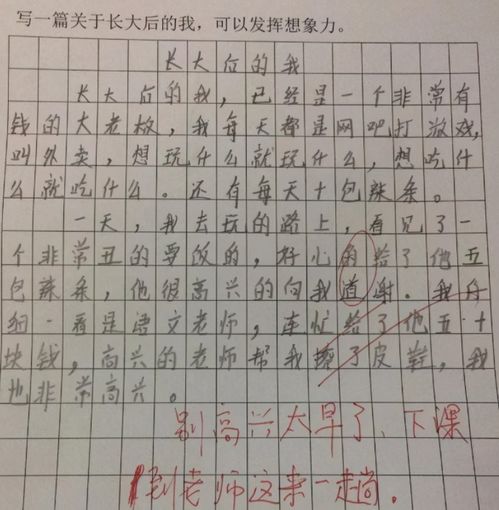 写一篇关于长大后的我，可以发挥想象力。
长大后的我
长大后的我，已经是一个非常有
钱的大老板，我每天都是网吧打游戏，
叫外卖，想玩什么就玩什么，想吃什
么就吃什么。还有每天十包辣条。
一天，我去玩的路上，看见了一
个非常丑的要饭的，好心的给了他五
包辣条，他很高兴的向我道谢。我仔
细一看是语文老师，连忙给了他五十
块钱，高兴的老师帮我擦了皮鞋，我
也非常高兴。
别高兴太早了、下课
到老师这来一趟。